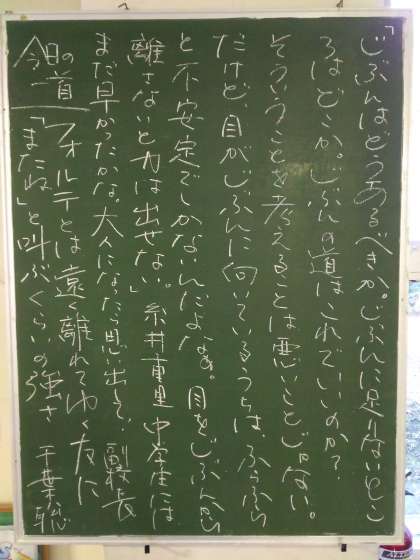 「じぶんはどうあるべきか。じぶんに足りないとこ
ろはどこか。じぶんの道はこれでいいのか？
そういうことを考えることは悪いことじゃない。
だけど、目がじぶんに向いているうちは、ふらふら
と不安定でしかないんだよなぁ。目をじぶんから
離さないと力は出せない。」糸井重里 中学生には
まだ早かったかな。大人になったら思い出して。副校長
今日の一首 フォルテとは遠く離れてゆく友に
「またね」と叫ぶくらいの強さ 千葉聡